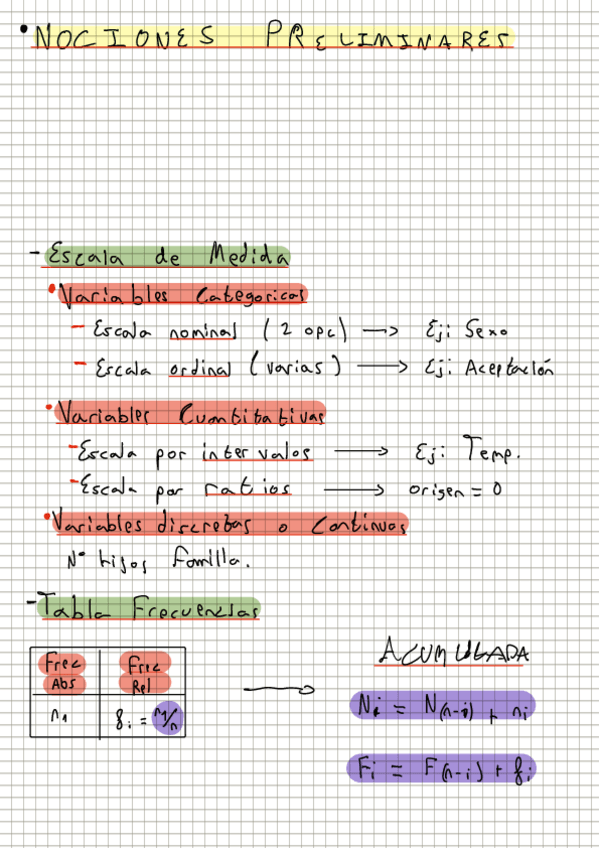 • NOCIONES PRELIMINARES
- Escala de Medida
• Variables Categoricas
- Escala nominal (2 opc) → Ej: Sexo
- Escala ordinal (varias) → Ej: Aceptación
• Variables Cuantitativas
- Escala por intervalos → Ej: Temp.
- Escala por ratios → origen = 0
• Variables discretas o Continuas
Nº hijos familia.
- Tabla Frecuencias
ACUMULADA
Frec Abs Frec Rel →
n₁ fᵢ = n₁/n
Nᵢ = N(n-i) + nᵢ
Fᵢ = F(n-i) + fᵢ